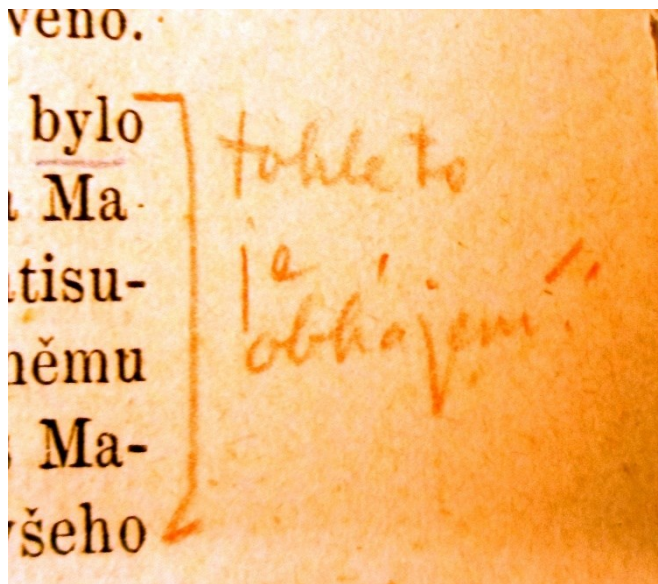 veno.
bylo
Ma-
tisu-
němu
Ma-
všeho
tohleto
je
obhájení!